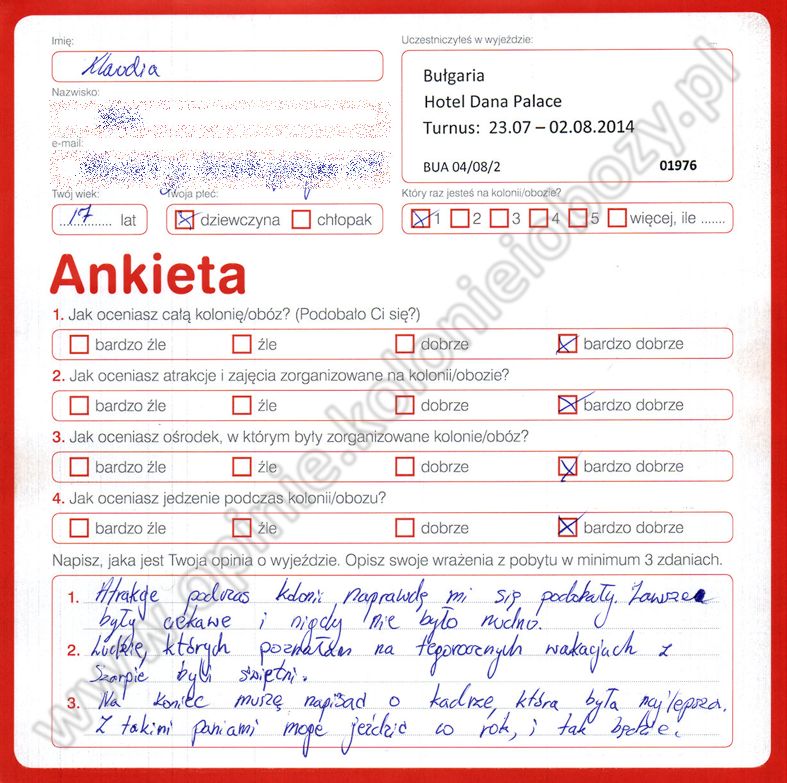 Imię:
Uczestniczyłeś w wyjeździe:
Klaudia
Bułgaria
Nazwisko:
Hotel Dana Palace
Turnus: 23.07 – 02.08.2014
e-mail:
BUA 04/08/2 01976
Twój wiek: Twoja płeć: Który raz jesteś na kolonii/obozie?
17 lat dziewczyna chłopak 1 2 3 4 5 więcej, ile .......
Ankieta
1. Jak oceniasz całą kolonię/obóz? (Podobało Ci się?)
bardzo źle źle dobrze bardzo dobrze
2. Jak oceniasz atrakcje i zajęcia zorganizowane na kolonii/obozie?
bardzo źle źle dobrze bardzo dobrze
3. Jak oceniasz ośrodek, w którym były zorganizowane kolonie/obóz?
bardzo źle źle dobrze bardzo dobrze
4. Jak oceniasz jedzenie podczas kolonii/obozu?
bardzo źle źle dobrze bardzo dobrze
Napisz, jaka jest Twoja opinia o wyjeździe. Opisz swoje wrażenia z pobytu w minimum 3 zdaniach.
1. Atrakcje podczas kolonii naprawdę mi się podobały. Zawsze
były ciekawe i nigdy nie było nudno.
2. Ludzie, których poznałam na tegorocznych wakacjach z
Szarpie byli świetni.
3. Na koniec muszę napisać o kadrze, która była najlepsza.
Z takimi paniami mogę jeździć co rok, i tak będzie.
www.opinie.kolonieiobozy.pl